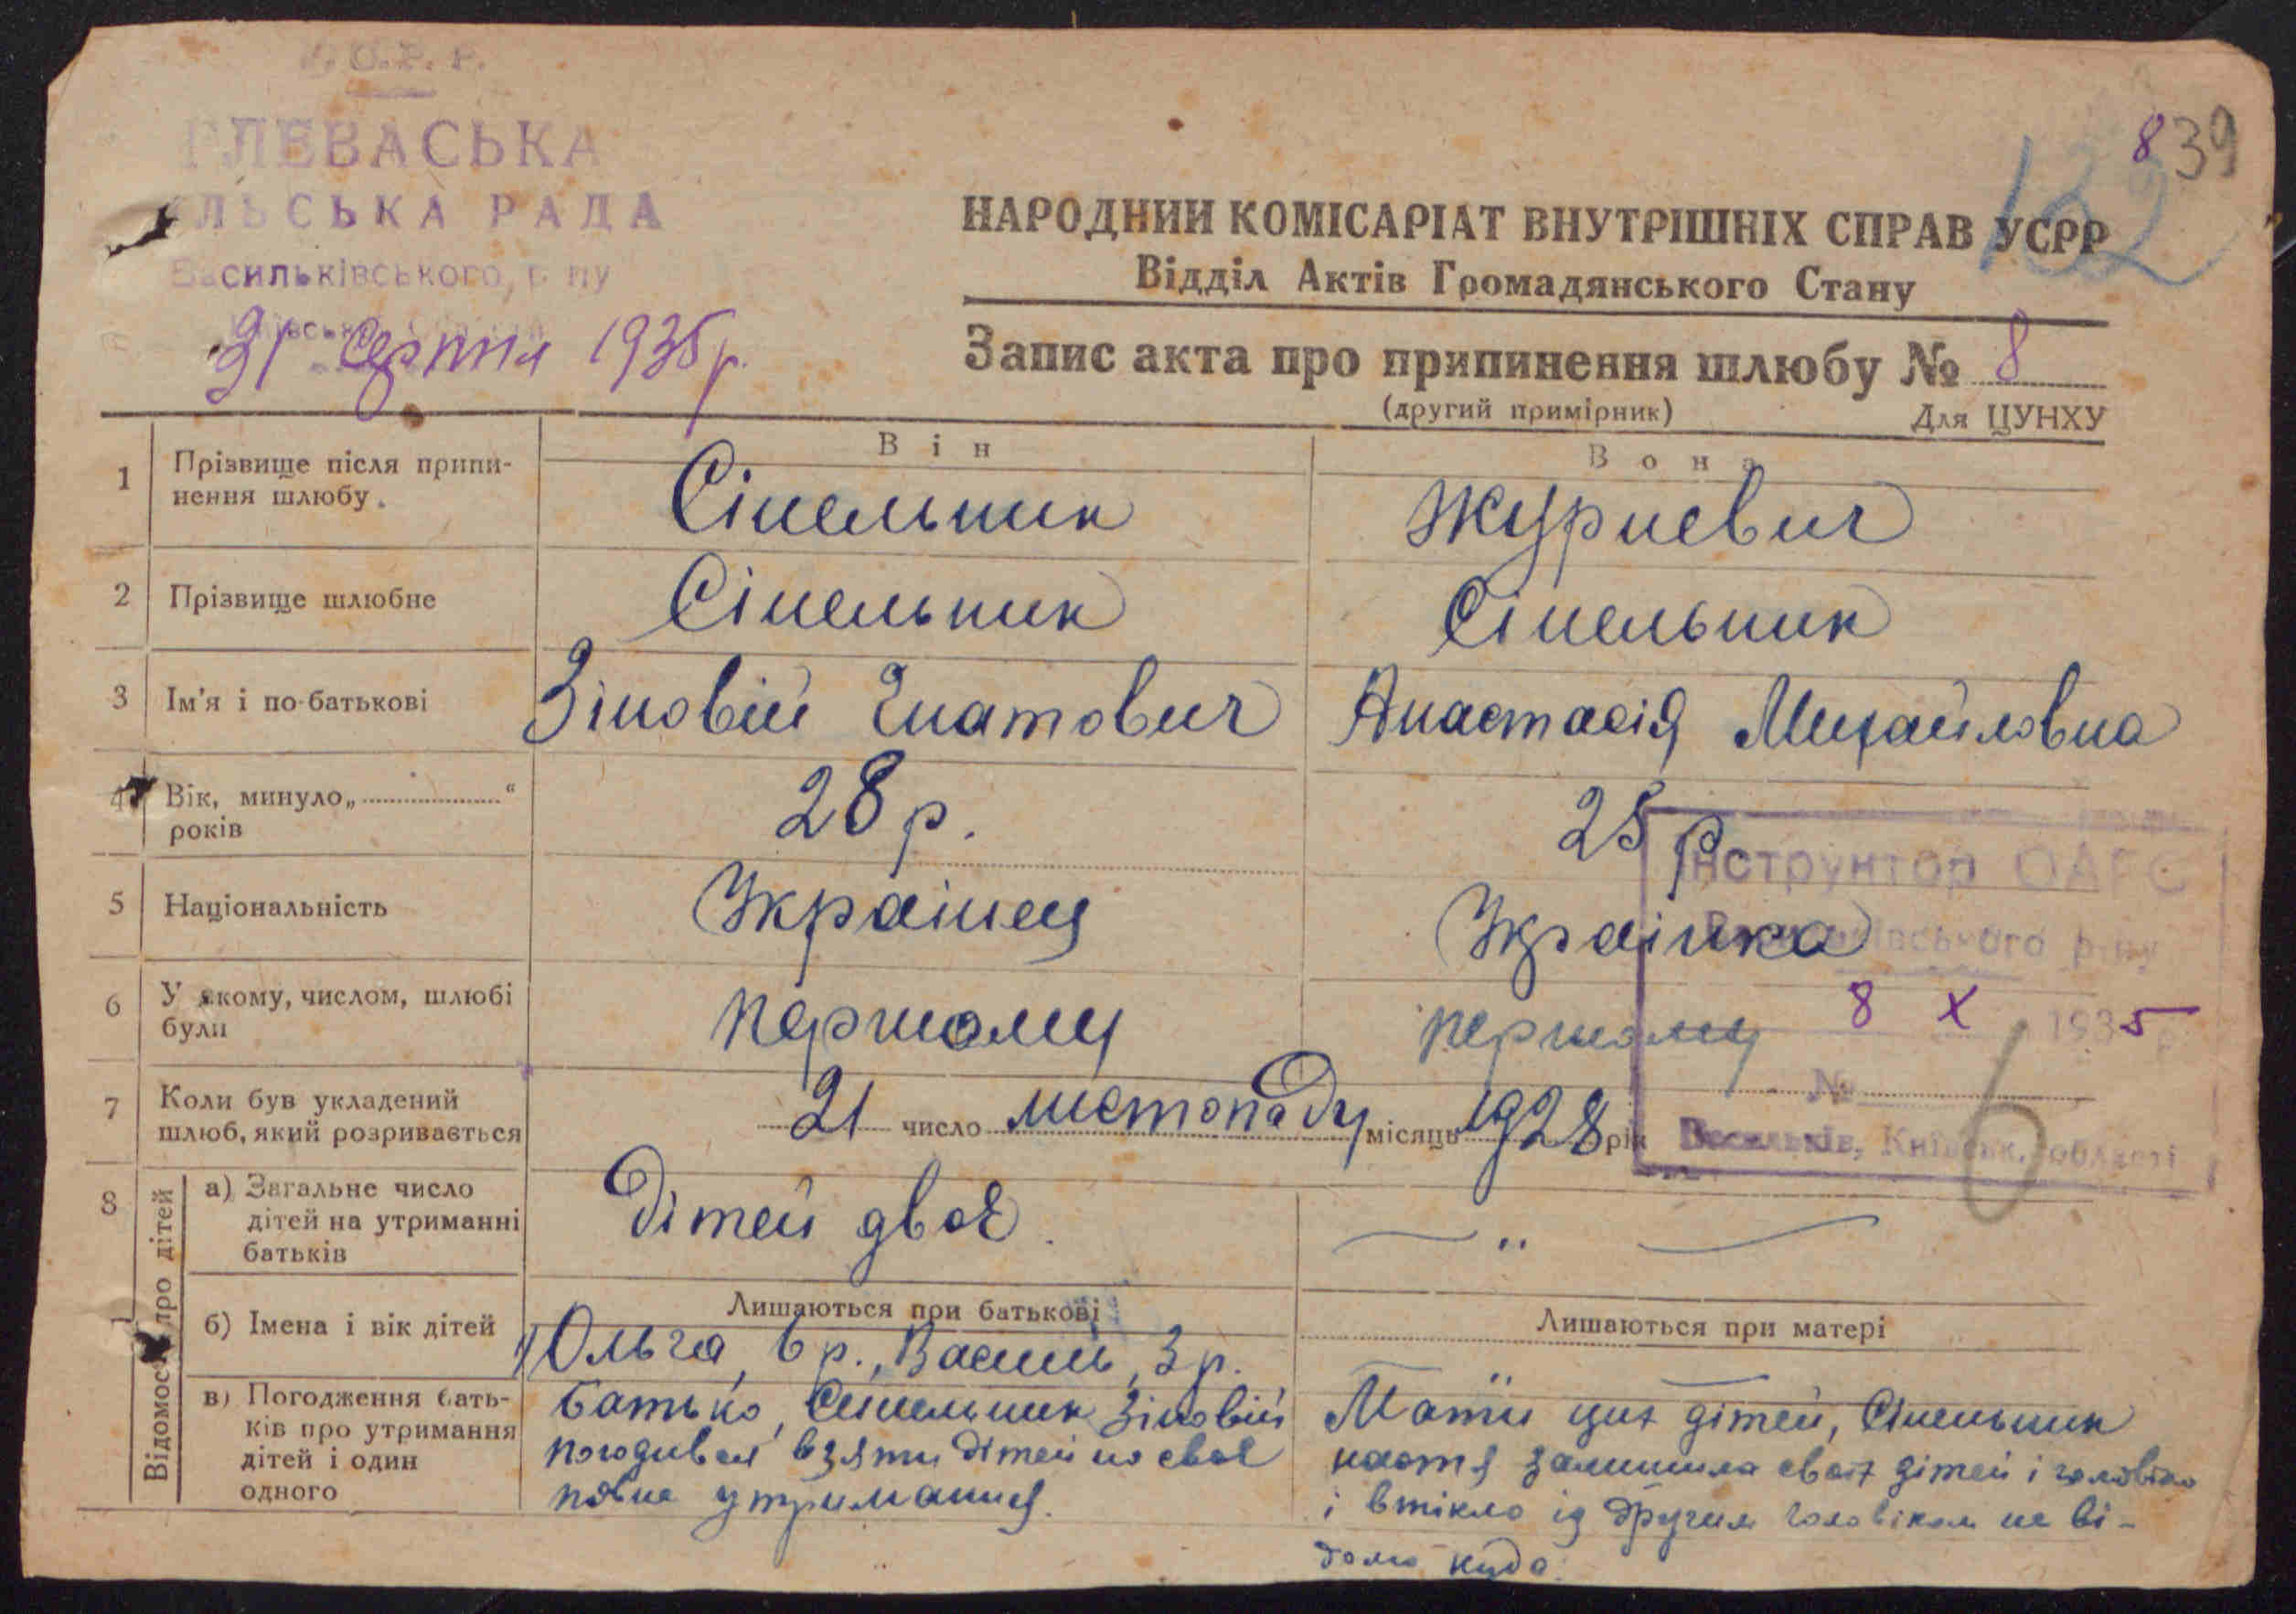 ГЛЕВАСЬКА
СІЛЬСЬКА РАДА
Васильківського, р-ну
31 серпня 1935 р.
8 39
132
НАРОДНИЙ КОМІСАРІАТ ВНУТРІШНІХ СПРАВ УСРР
Відділ Актів Громадянського Стану
Запис акта про припинення шлюбу № 8
(другий примірник) Для ЦУНХУ
Він Вона
1 Прізвище після припи-
нення шлюбу.
Сінельник Журневич
2 Прізвище шлюбне Сінельник Сінельник
3 Ім'я і по-батькові Зіновій Гнатович Анастасія Михайловна
4 Вік, минуло „ “
років
28 р. 25 р.
Інструктор ОАГС
Васильківського р-ну
5 Національність Українец Українка
6 У якому, числом, шлюбі
були
першому першому
8 X 1935 р
№
7 Коли був укладений
шлюб, який розривається
21 число листопаду місяць 1928 рік
Васильків, Київськ. області
6
8 Відомості про дітей
а) Загальне число
дітей на утриманні
батьків
дітей двоє. — „ —
б) Імена і вік дітей
Лишаються при батькові Лишаються при матері
Ольга, 6 р., Василь, 3 р. — „ —
в) Погодження бать-
ків про утримання
дітей і один
одного
Батько, Сінельник Зіновій
погодився взяти дітей на своє
повне утримання.
Мати цих дітей, Сінельник
настя залишила своїх дітей і
і втікла із другим чоловіком не ві-
домо куда.